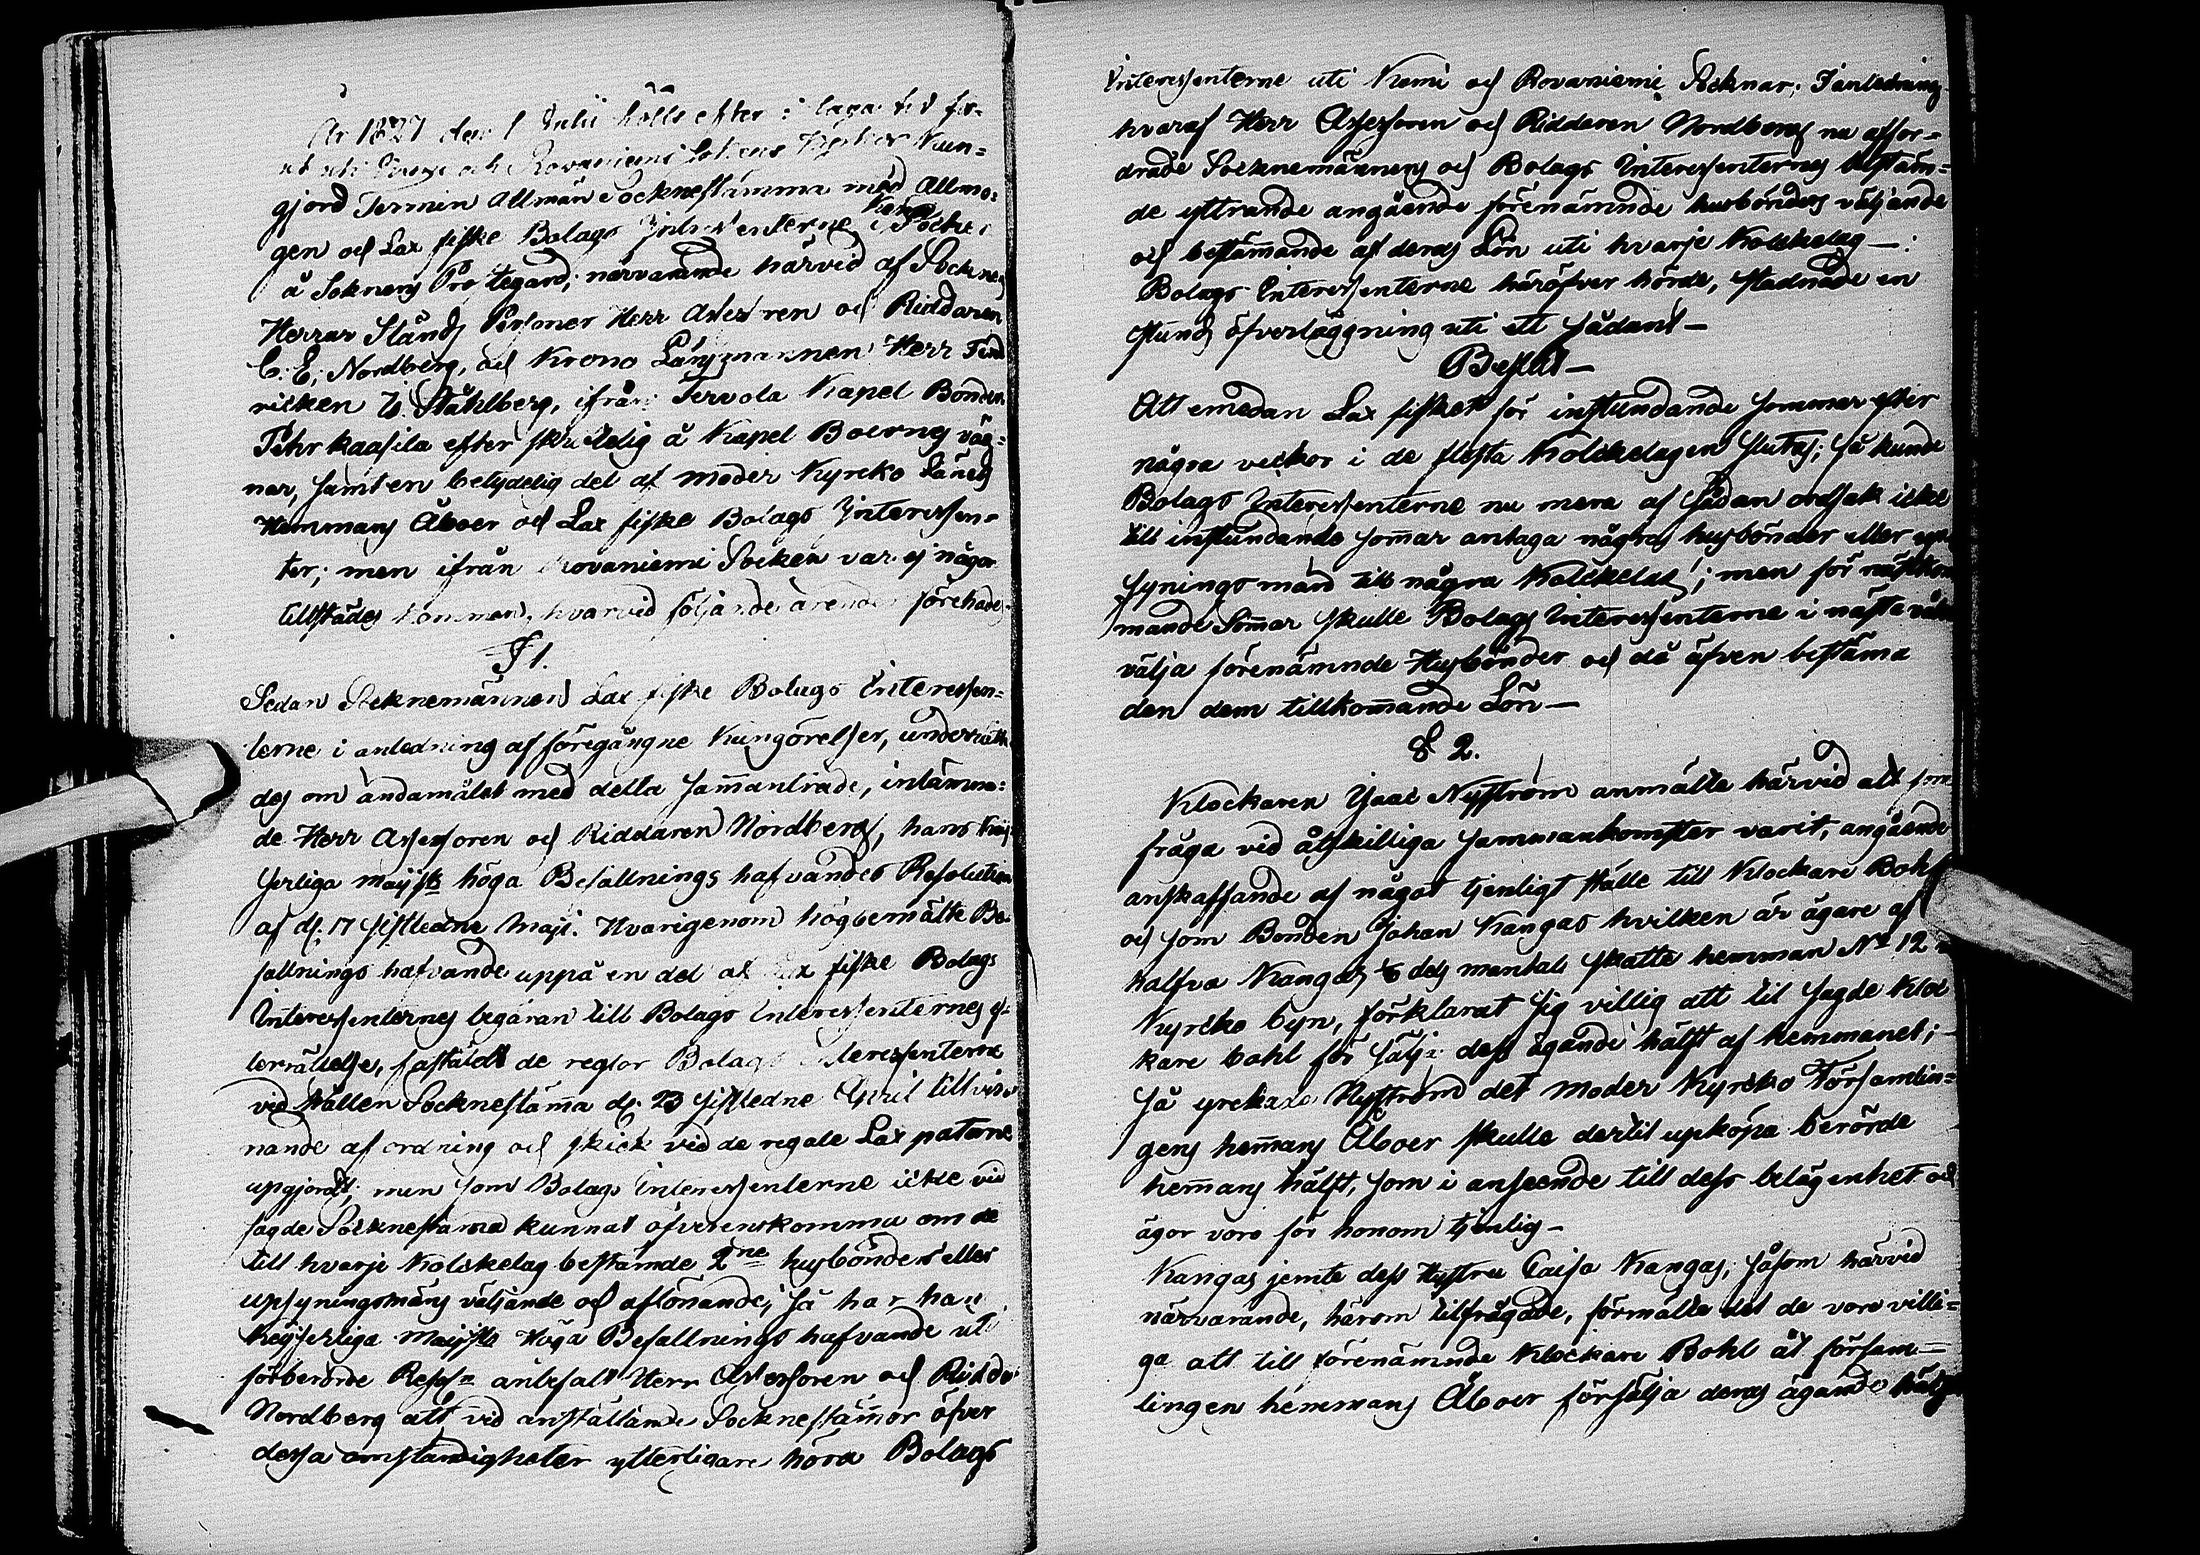 År 1827 den 1 Julii hölls efter i laga tid för-
ut uti Kemi och Rovaniemi Sokens Kyrkor Kun-
gjord Termin Allmän Socknestämma med Allmo-
gen och Lax fiske Bolags Interessenterne i Kemi Socken
å Soknens Prostegård; närvarande härvid af Socknens
Herrar Stånds Personer Herr Assessoren och Riddaren
C. E. Nordberg, och Krono Länsmannen Herr Fend-
ricken Z. Ståhlberg, ifrån Tervola Kapel Bonden
Pehr Kaasila efter skriftelig å Kapel Boernes väg-
nar, samt en betydelig del af moder Kyrcko Länets
Hemmans Åboer och Lax fiske Bolags Interessen-
ter; men ifrån Rovaniemi Socken var ej någor
tillstädes kommen, hvarvid följande ärender förehades
§ 1.
Sedan Socknemännen Lax fiske Bolags Interessen-
terne i anledning af föregångne Kungörelser, underrätta-
des om ändamålet med detta sammanträde, inlämna-
de Herr Assessoren och Riddaren Nordberg, hans Kej-
serliga maij:ts höga Befallnings hafvandes Resolution
af d. 17 sistledne Maji. Hvarigenom högbemälte Be-
fallnings hafvande uppå en del af Lax fiske Bolags
Interessenternes begäran till Bolags Interessenternes ef-
terrättelse, faststäldt de reglor Bolags Interessenterne
vid hållen Socknestämma d. 23 sistledne April till vin-
nande af ordning och skick vid de regale Lax patorne
upgjordt; men som Bolags Interessenterne icke vid
sagde Socknestämma kunnat öfverenskomma om de
till hvarje Kolckelag bestämde 2ne husbönders eller
upsyningsmäns väljande och aflönande; så har hans
Keijserliga Maij:ts Höga Befallnings hafvande uti
förberörde Resol:n anbefalt Herr Assessoren och Riddar
Nordberg att vid anställande Socknestämmor öfver
dessa omständigheter ytterligare höra Bolags
Interessenterne uti Kemi och Rovaniemi Socknar; I anledning
hvaraf Herr Assessoren och Ridderen Nordberg nu affor-
drade Socknemännens och Bolags Interessenternes bestäm-
de yttrande angående förenämnde husbönders väljande
och bestämande af deras Lön uti hvarje Kolckelag —:
Bolags Interessenterne häröfver hörde, stadnade en
stunds öfverläggning uti ett sådant —
Beslut —
Att emedan Lax fisket för instundande sommar efter
några veckor i de flesta Kolckelagen slutas; så kunde
Bolags Interessenterne nu mera af sådan ordsak icke
till instundande somar antaga några husbönder eller up-
syningsmän till några Kolckelag; men för nästkom-
mande Somar skulle Bolags Interessenterne i nästa vår
välja förenämnde Husbönder och då äfven bestäma
den dem tillkomande Lön —
§ 2.
Klockaren Isaac Nyström anmälte härvid att som
fråga vid åtskilliga sammankomster varit, angående
anskaffande af något tjenligt ställe till Klockare Bohl
och som Bonden Johan Kangas hvilken är ägare af
halfva Kangas dels mantals skatte hemman No 12 i
Kyrcko byn, förklarat sig villig att til sagde Kloc
kare bohl försälja dess ägande hälft af hemmanet;
så yrckade Nyström det moder Kyrcko Församlin-
gens hemans Åboer skulle dertil upköpa berörde
hemans hälft, som i anseende till dess belägenhet och
ägor voro för honom tjenlig —
Kangas jemte dess Hustru Caisa Kangas, såsom härvid
närvarande, härom tilfrågade, förmälte det de voro villi-
ga att till förenämnde Klockare Bohl åt försam-
lingen hemmans Åboer försälja deras ägande hälft